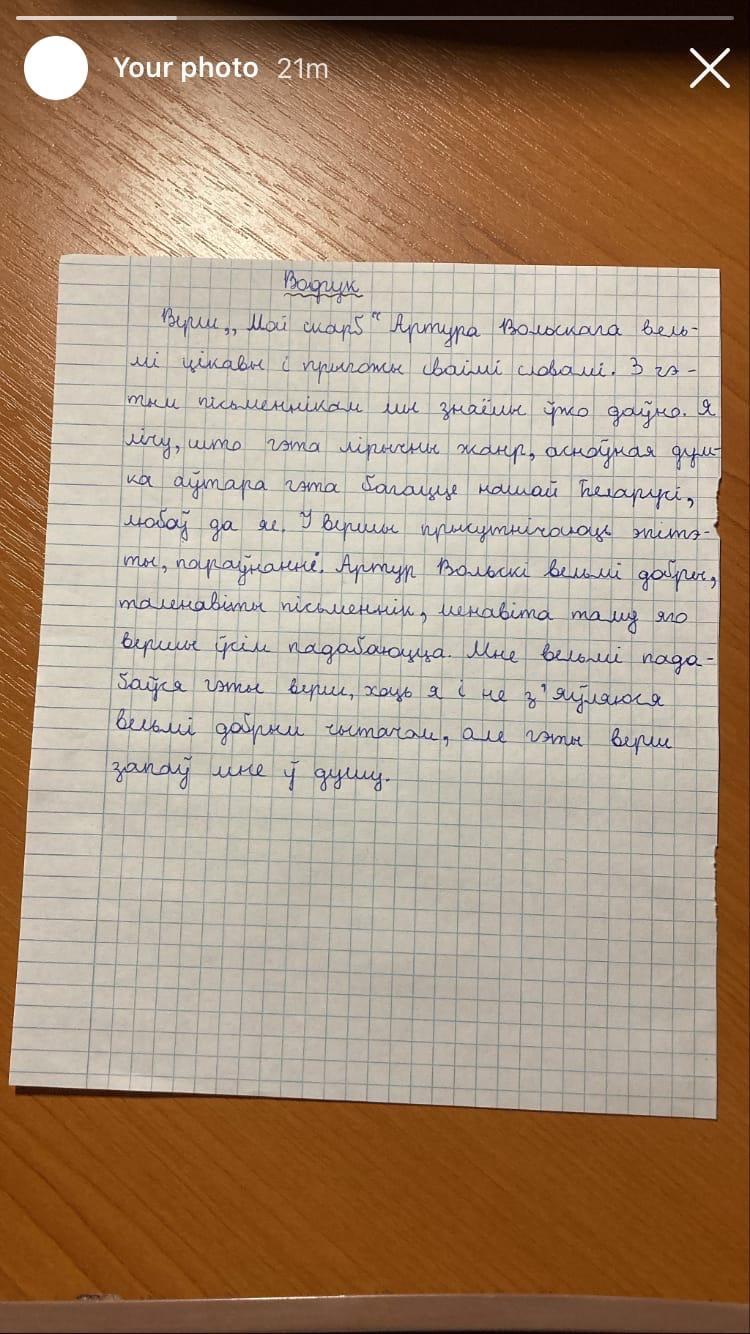 Your photo 21m
Водгук
Верш „Мой скарб“ Артура Вольскага вель-
мі цікавы і прыгожы сваімі словамі. З гэ-
тым пісьменнікам мы знаёмы ўжо даўно. Я
лічу, што гэта лірычны жанр, асноўная дум-
ка аўтара гэта багацце нашай Беларусі,
любоў да яе. У вершы прысутнічаюць эпітэ-
ты, параўнанні. Артур Вольскі вельмі добры,
таленавіты пісьменнік, менавіта таму яго
вершы ўсім падабаюцца. Мне вельмі пада-
баўся гэты верш, хоць я і не з'яўляюся
вельмі добрым чытачом, але гэты верш
запаў мне ў душу.